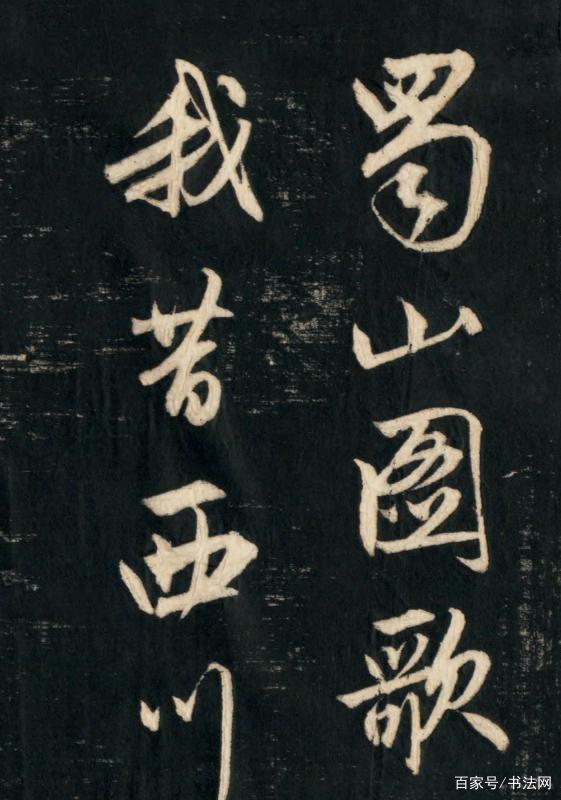 蜀山圖歌
我昔西川
百家号/书法网